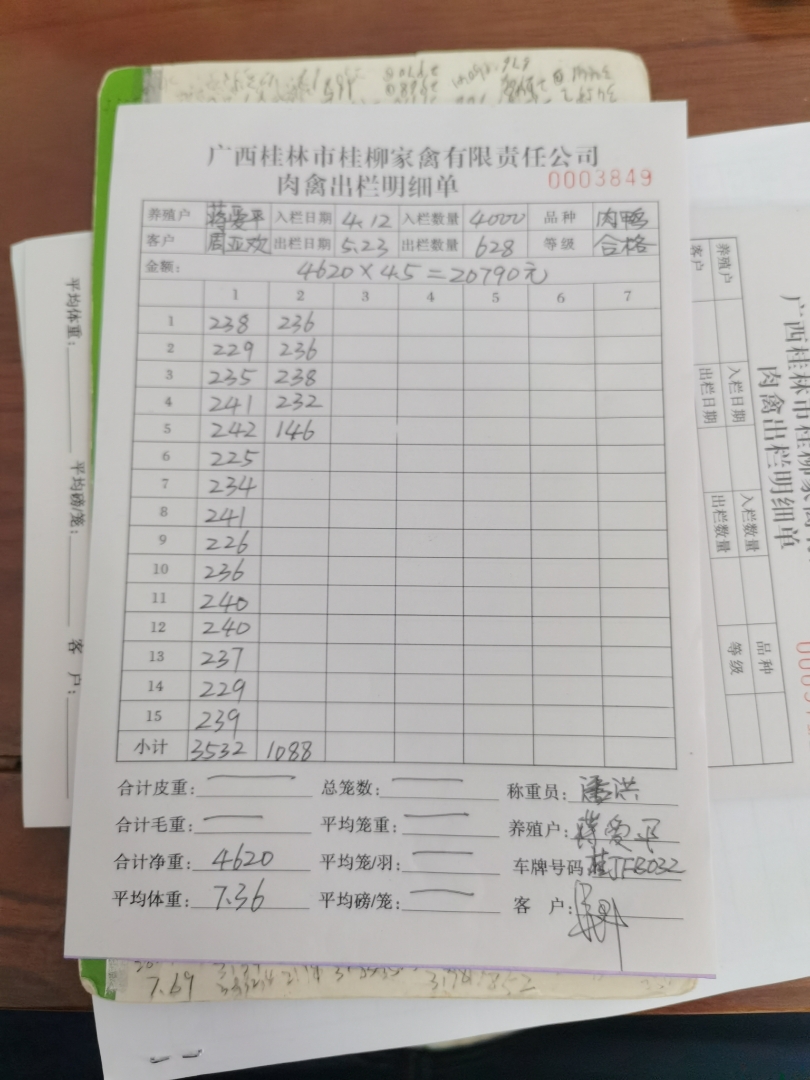 广西桂林市桂柳家禽有限责任公司
肉禽出栏明细单
0003849
养殖户 蒋爱平 入栏日期 4.12 入栏数量 4000 品种 肉鸭
客户 周亚欢 出栏日期 5.23 出栏数量 628 等级 合格
金额: 4620×4.5=20790元
1 2 3 4 5 6 7
1 238 236
2 229 236
3 235 238
4 241 232
5 242 146
6 225
7 234
8 241
9 226
10 236
11 240
12 240
13 237
14 229
15 239
小计 3532 1088
合计皮重: 总笼数: 称重员: 潘洪
合计毛重: 平均笼重: 养殖户: 蒋爱平
合计净重: 4620 平均笼/羽: 车牌号码
平均体重: 7.36 平均磅/笼: 客 户:
7.69
平均体重: 平均磅/笼: 客 户:
广西桂林市桂柳家禽
肉禽出栏明细单
养殖户 入栏日期 入栏数量 品种
客户 出栏日期 出栏数量 等级